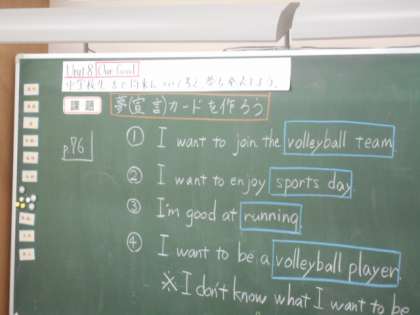 Unit 8 Our Goal
課題 夢(宣言)カードを作ろう
p76
① I want to join the volleyball team.
② I want to enjoy sports day.
③ I'm good at running.
④ I want to be a volleyball player.
※ I don't know what I want to be